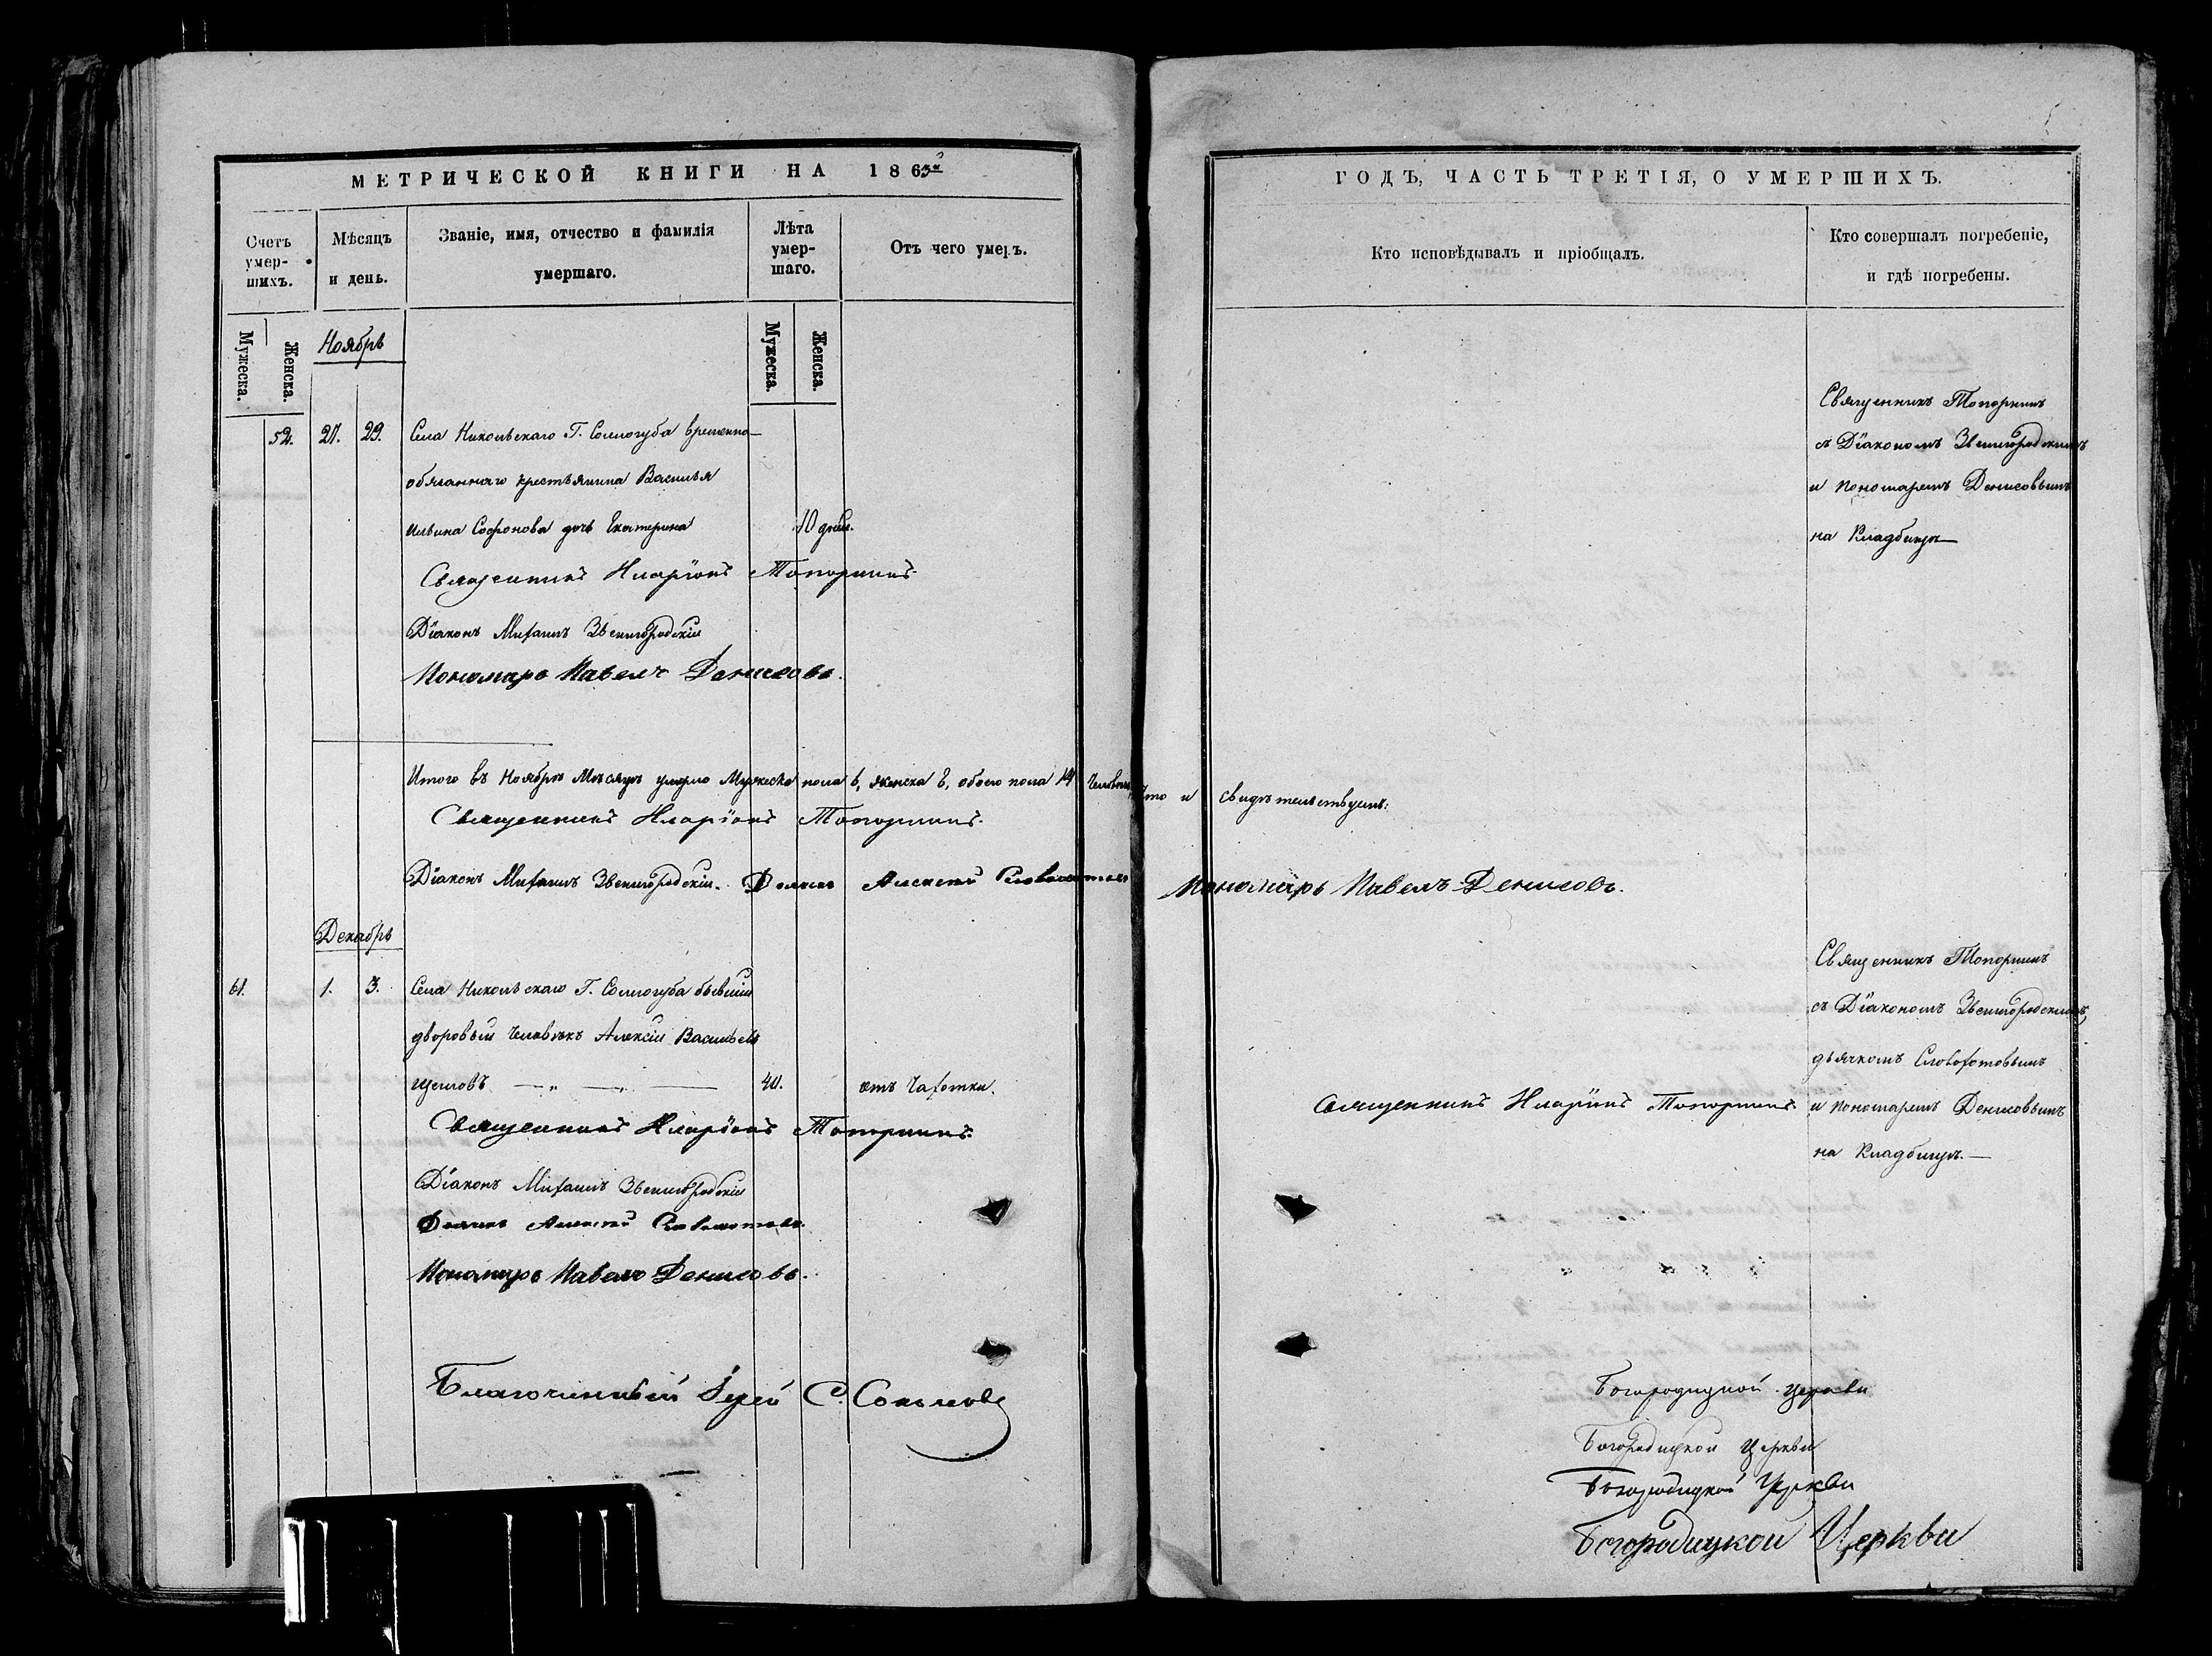 МЕТРИЧЕСКОЙ КНИГИ НА 1863й
Счетъ умер-шихъ.
Мѣсяцъ и день.
Званіе, имя, отчество и фамилія умершаго.
Лѣта умер-шаго.
Отъ чего умеръ.
Мужеска.
Женска.
Ноябрь
Мужеска.
Женска.
52. 27. 29. Села Никольскаго Г. Соллогуба временно-
обязаннаго крестьянина Василья
Ильина Софонова дочь Екатерина 10 дней.
Священникъ Иларіонъ Топорнинъ.
Діаконъ Михаилъ Звенигородскій
Пономарь Павелъ Денисовъ.
Итого въ Ноябрѣ Мѣсяцѣ умерло Мужеска пола 6, женска 8, обоего пола 14 Человѣкъ, Что и свидѣтельствуемъ:
Священникъ Иларіонъ Топорнинъ.
Діаконъ Михаилъ Звенигородскій. Дьячекъ Алексей Словохотовъ Пономарь Павелъ Денисовъ.
Декабрь
61. 1. 3. Села Никольскаго Г. Соллогуба бывшій
дворовый Человѣкъ Алексій Васильевъ
Щегловъ — „ — „ — 40. отъ Чахотки.
Священникъ Иларіонъ Топорнинъ.
Діаконъ Михаилъ Звенигородскій
Дьячекъ Алексей Словохотовъ.
Пономарь Павелъ Денисовъ.
Благочинный Іерей С. Соколовъ
ГОДЪ, ЧАСТЬ ТРЕТІЯ, О УМЕРШИХЪ.
Кто исповѣдывалъ и пріобщалъ.
Кто совершалъ погребеніе,
и гдѣ погребены.
Священникъ Топорнинъ
съ Діакономъ Звенигородскимъ
и пономаремъ Денисовымъ
на Кладбищѣ—
Священникъ Топорнинъ
съ Діакономъ Звенигородскимъ,
дьячкомъ Словохотовымъ
Священникъ Иларіонъ Топорнинъ. и пономаремъ Денисовымъ
на Кладбищѣ.—
Богородицкой церкви
Богородицкой Церкви
Богородицкой Церкви
Богородицкой Церкви